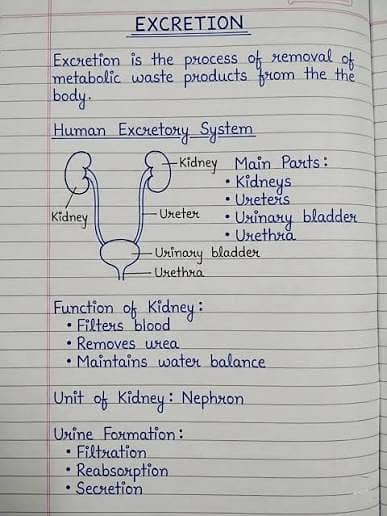 EXCRETION
Excretion is the process of removal of
metabolic waste products from the the
body.
Human Excretory System
Kidney
Kidney
Ureter
Urinary bladder
Urethra
Main Parts:
• Kidneys
• Ureters
• Urinary bladder
• Urethra
Function of Kidney:
• Filters blood
• Removes urea
• Maintains water balance
Unit of Kidney: Nephron
Urine Formation:
• Filtration
• Reabsorption
• Secretion